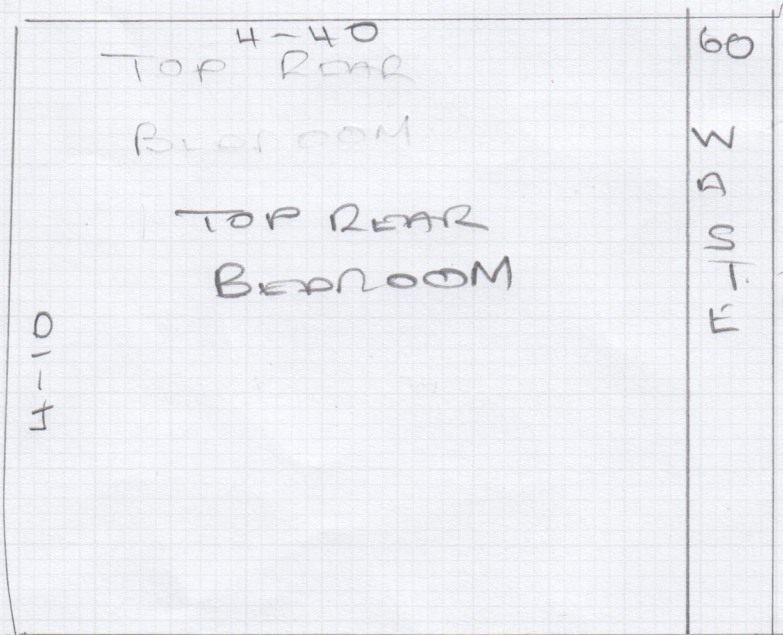 4-40
60
TOP REAR
BEDROOM
TOP REAR
BEDROOM
WASTE